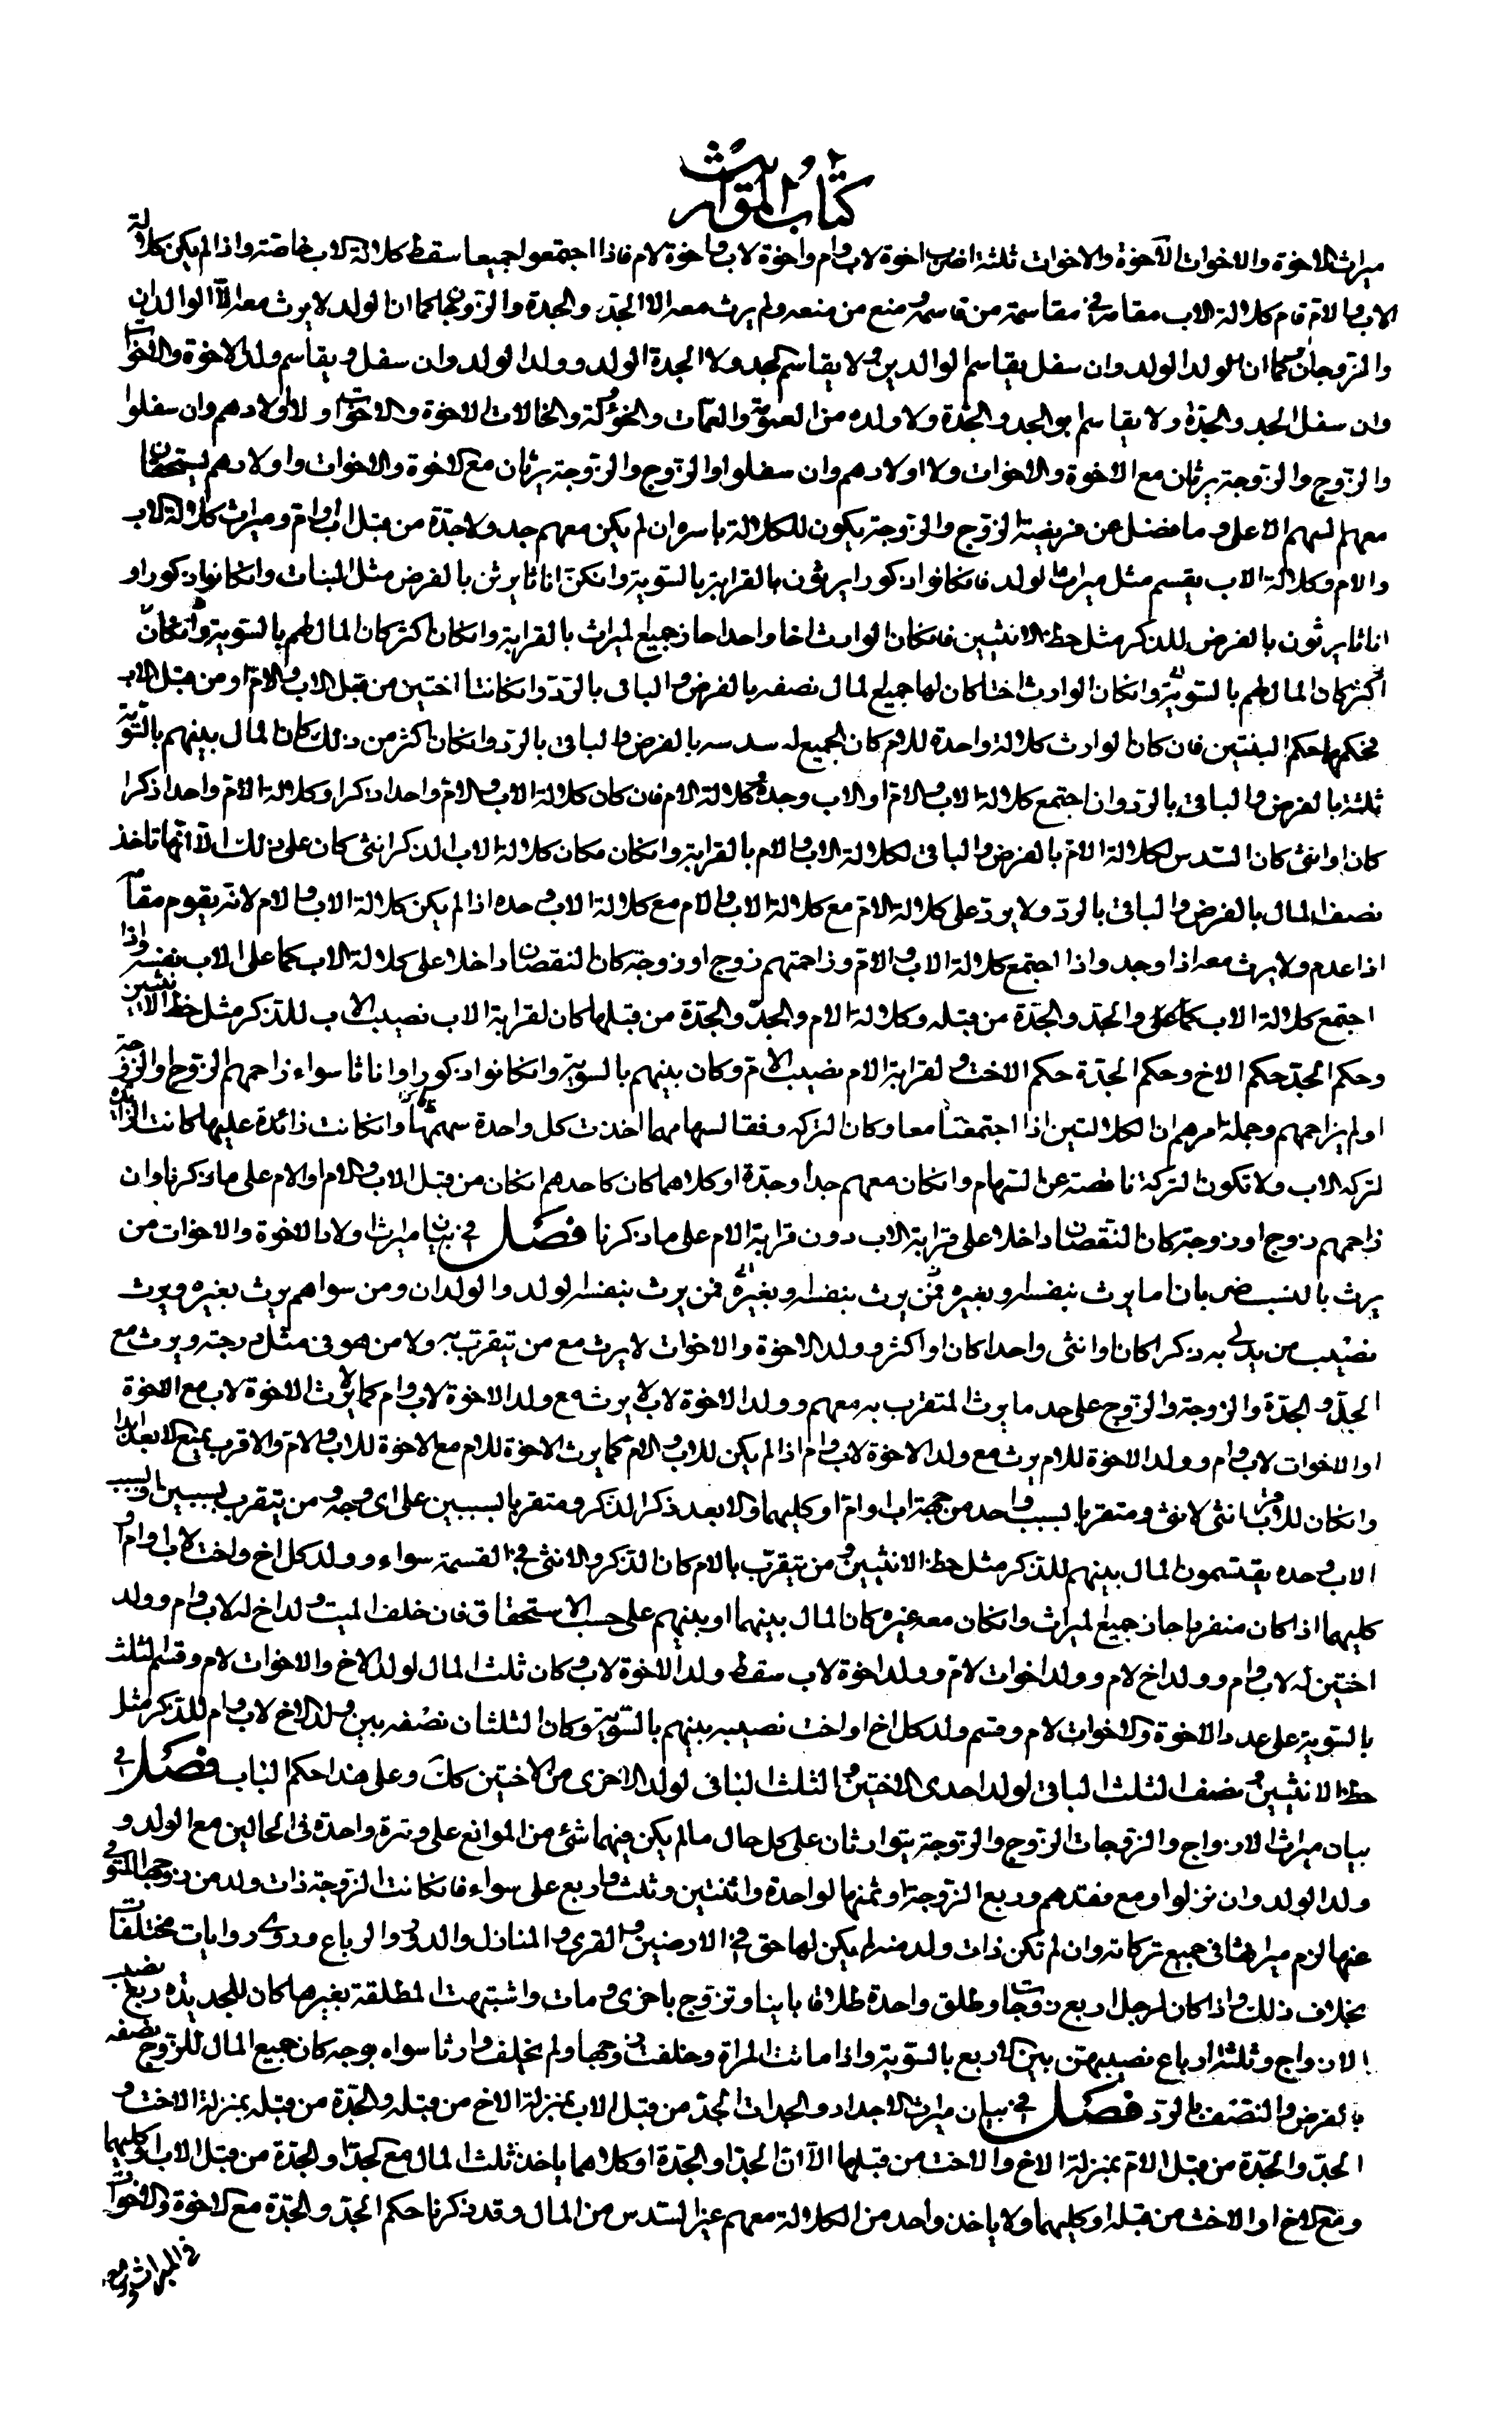 كتاب المواريث
ميراث الاخوة والاخوات الاخوة والاخوات ثلثة اضرب اخوة لاب وام واخوة لاب واخوة لام فاذا اجتمعوا جميعا سقط كلالة الاب خاصة واذا لم يكن كلالة
الاب والام قام كلالة الاب مقامه في مقاسمة من قاسمه ومنع من منعه ولم يرث معه الا الجد والجدة والزوجان كما ان الولد لا يرث معه الا الوالدان
والزوجان وكما ان الولد الولد وان سفل يقاسم الوالدين ولا يقاسم الجد ولا الجدة الولد وولد الولد وان سفل ويقاسم ولد الاخوة والاخوات
وان سفل الجد والجدة ولا يقاسم ابو الجد والجدة ولا ولده من العمومة والعمات والخؤلة والخالات الاخوة والاخوات ولا اولادهم وان سفلوا
والزوج والزوجة يرثان مع الاخوة والاخوات ولا اولادهم وان سفلوا والزوج والزوجة يرثان مع الاخوة والاخوات واولادهم يستحقان
معهم السهم الاعلى وما فضل عن فريضة الزوج والزوجة يكون للكلالة باسره ان لم يكن معهم جد ولا جدة من قبل اب او ام وميراث كلالة الاب
والام وكلالة الاب يقسم مثل ميراث الولد فانكانوا ذكورا يرثون بالقرابة بالسوية وانكن اناثا يرثن بالفرض مثل البنات وانكانوا ذكورا و
اناثا يرثون بالفرض للذكر مثل حظ الانثيين فانكان الوارث اخا واحدا حاز جميع الميراث بالقرابة وانكان اكثر كان المال لهم بالسوية وانكان
اكثر كان المال لهم بالسوية وانكان الوارث اختا كان لها جميع المال نصفه بالفرض والباقى بالرد وانكانتا اختين من قبل الاب والام او من قبل الاب
فحكمها حكم البنتين فان كان الوارث كلالة واحدة للام كان الجميع له سدسه بالفرض والباقى بالرد وانكان اكثر من ذلك كان المال بينهم بالسوية
ثلثة بالفرض والباقى بالرد وان اجتمع كلالة الاب والام او الاب وحده وكلالة الام فان كان كلالة الاب والام واحدا ذكرا وكلالة الام واحدا ذكرا
كان او انثى كان السدس لكلالة الام بالفرض والباقى لكلالة الاب والام بالقرابة وانكان مكان كلالة الاب الذكر انثى كان على ذلك الا انها تاخذ
نصف المال بالفرض والباقى بالرد ولا يرد على كلالة الام مع كلالة الاب والام مع كلالة الاب وحده اذا لم يكن كلالة الاب والام لانه يقوم مقامه
اذا عدم ولا يرث معه اذا وجد واذا اجتمع كلالة الاب والام وزاحمتهم زوج او زوجة كان النقصان داخلا على كلالة الاب كما على الاب نفسه واذا
اجتمع كلالة الاب والجد والجدة من قبله وكلالة الام والجد والجدة من قبلها كان لقرابة الاب نصيب الاب للذكر مثل حظ الانثيين
وحكم الجد حكم الاخ وحكم الجدة حكم الاخت ولقرابة الام نصيب الام وكان بينهم بالسوية وانكانوا ذكورا واناثا سواء زاحمهم الزوج والزوجة
او لم يزاحمهم وجملة امرهم ان الكلالتين اذا اجتمعتا معا وكان التركة وفقا لسهامهما اخذت كل واحدة سهمها وانكانت زائدة عليها كانت الزائدة
لتركة الاب ولا تكون التركة ناقصة عن السهام وانكان معهم جد او جدة او كلاهما كان كاحدهم انكان من قبل الاب والام او الام على ما ذكرنا وان
زاحمهم زوج او زوجة كان النقصان داخلا على قرابة الاب دون قرابة الام على ما ذكرنا فصل في بيان ميراث اولاد الاخوة والاخوات من
يرث بالنسب ضربان اما يرث بنفسه وبغيره فمن يرث بنفسه الولد والوالدان ومن سواهم يرث بغيره ويرث
نصيب من يدلى به ذكرا كان او انثى واحدا كان او اكثر وولد الاخوة والاخوات لا يرث مع من يتقرب به ولا من هو فى مثل درجته ويرث مع
الجد والجدة والزوجة والزوج على حد ما يرث المتقرب به معهم وولد الاخوة لاب لا يرث مع ولد الاخوة لاب وام كما لا يرث الاخوة لاب مع الاخوة
او الاخوات لاب وام وولد الاخوة للام يرث مع ولد الاخوة لاب وام اذا لم يكن للاب والام كما يرث الاخوة للام مع الاخوة للاب والام والاقرب يمنع الابعد ابدا
وانكان الاقرب انثى لانثى ومتقربا بسبب واحد من جهة اب او ام او كليهما والابعد ذكرا لذكر ومتقربا بسببين على اى وجه ومن يتقرب بسببين او بسبب
الاب وحده يقتسمون المال بينهم للذكر مثل حظ الانثيين ومن يتقرب بالام كان الذكر والانثى فى القسمة سواء وولد كل اخ واخت لاب او ام او
كليهما اذا كان منفردا حاز جميع الميراث وانكان معه غيره كان المال بينهما او بينهم على حسب الاستحقاق فان خلف الميت ولد اخ له لاب وام وولد
اختين له لاب وام وولد اخ لام وولد اخوات لام وولد اخوة لاب سقط ولد الاخوة لاب وكان ثلث المال لولد الاخ والاخوات لام وقسم الثلث
بالسوية على عدد الاخوة والاخوات لام وقسم ولد كل اخ او اخت نصيبه بينهم بالسوية وكان الثلثان نصفه بين ولد الاخ لاب وام للذكر مثل
حظ الانثيين ونصف الثلث الباقى لولد احدى الاختين والثلث الباقى لولد الاخرى من الاختين كان وعلى هذا حكم الباب فصل في
بيان ميراث الازواج والزوجات الزوج والزوجة يتوارثان على كل حال ما لم يكن فيهما شئ من الموانع على وتيرة واحدة فى الحالين مع الولد و
ولد الولد وان نزلوا ومع فقدهم وربع الزوجة او ثمنها لواحدة واثنتين وثلث واربع على سواء فانكانت الزوجة ذات ولد من زوجها المتوفى
عنها لزم ميراثها فى جميع تركاته وان لم تكن ذات ولد منه لم يكن لها حق في الارضين والقرى والمنازل والدور والرباع وروى روايات مختلفات
بخلاف ذلك واذا كان لرجل اربع زوجات وطلق واحدة طلاقا باينا وتزوج باخرى ومات واشتبهت المطلقة بغيرها كان للجديدة ربع نصيب
الازواج وثلثة ارباع نصيبهن بين الاربع بالسوية واذا ماتت المراة وخلفت زوجها ولم يخلف وارثا سواه بوجه كان جميع المال للزوج نصفه
بالفرض والنصف بالرد فصل في بيان ميراث الاجداد والجدات الجد من قبل الاب بمنزلة الاخ من قبله والجدة من قبله بمنزلة الاخت و
الجد والجدة من قبل الام بمنزلة الاخ والاخت من قبلها الا ان الجد او الجدة او كلاهما ياخذ ثلث المال مع الجد او الجدة من قبل الاب او كليهما
ومع الاخ او الاخت من قبله او كليهما ولا ياخذ واحد من الكلالة معهم غير السدس من المال وقد ذكرنا حكم الجد والجدة مع الاخوة والاخوات
في الميراث ومع